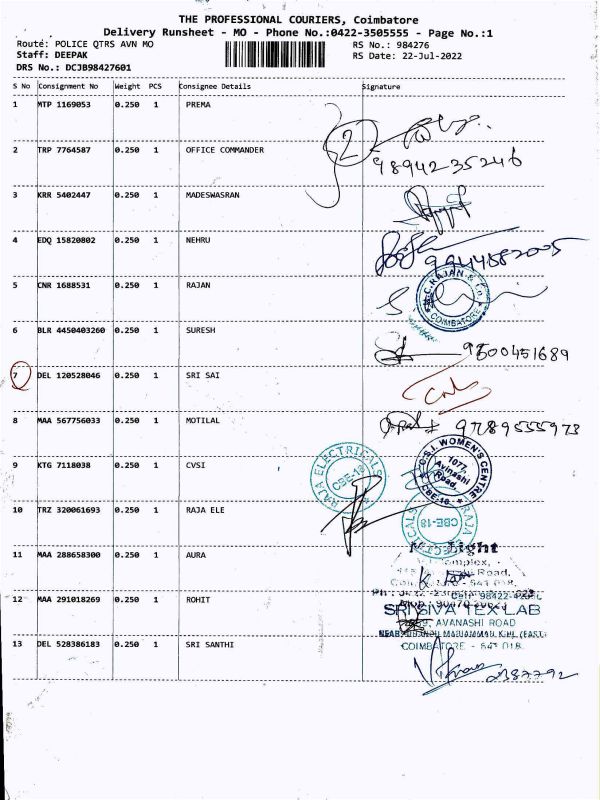 THE PROFESSIONAL COURIERS, Coimbatore
Delivery Runsheet - MO - Phone No.:0422-3505555 - Page No.:1
Route: POLICE QTRS AVN MO
RS No.: 984276
Staff: DEEPAK
RS Date: 22-Jul-2022
DRS No.: DCJB98427601
S No Consignment No Weight PCS Consignee Details Signature
1 MTP 1169053 0.250 1 PREMA
2
2 TRP 7764587 0.250 1 OFFICE COMMANDER
98942-35246
3 KRR 5402447 0.250 1 MADESWASRAN
4 EDQ 15820802 0.250 1 NEHRU
9944582005
5 CNR 1688531 0.250 1 RAJAN
C.RAJAN & Co.
COIMBATORE
6 BLR 4450403260 0.250 1 SURESH
9500451689
7 DEL 120528046 0.250 1 SRI SAI
8 MAA 567756033 0.250 1 MOTILAL
9789555973
9 KTG 7118038 0.250 1 CVSI
RAJA ELECTRICALS
CBE-18
C.S.I. WOMEN'S CENTRE
1077,
Avinashi
Road,
CBE-18
10 TRZ 320061693 0.250 1 RAJA ELE
RAJA ELECTRICALS
CBE-18
11 MAA 288658300 0.250 1 AURA
Light
Complex,
Road,
641 018.
12 MAA 291018269 0.250 1 ROHIT
SRI SIVA TEX LAB
AVANASHI ROAD
COIMBATORE - 641 018.
13 DEL 528386183 0.250 1 SRI SANTHI